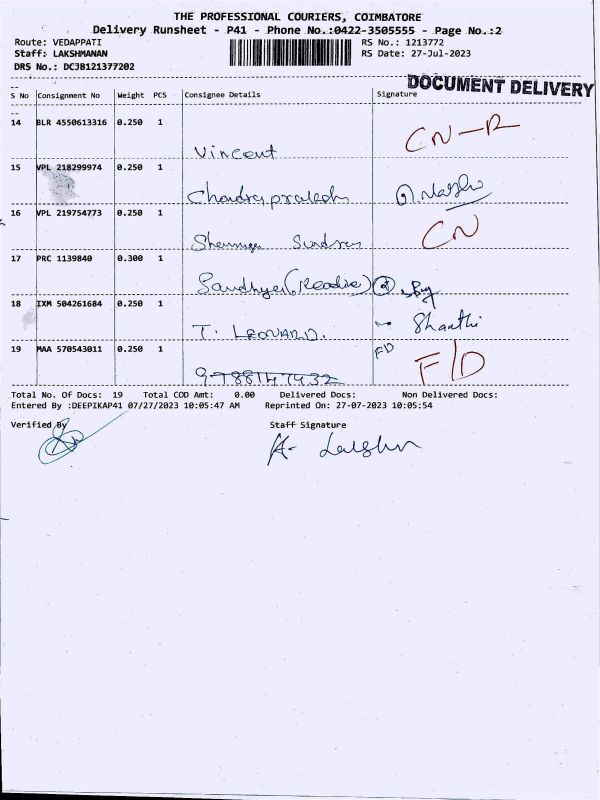 THE PROFESSIONAL COURIERS, COIMBATORE
Delivery Runsheet - P41 - Phone No.:0422-3505555 - Page No.:2
Route: VEDAPPATI RS No.: 1213772
Staff: LAKSHMANAN RS Date: 27-Jul-2023
DRS No.: DCJB121377202
DOCUMENT DELIVERY
S No Consignment No Weight PCS Consignee Details Signature
14 BLR 4550613316 0.250 1
Vincent CN-R
15 VPL 218299974 0.250 1
Chandraprakash
16 VPL 219754773 0.250 1
CN
17 PRC 1139840 0.300 1
Sandhya
18 IXM 504261684 0.250 1
T. LEONARD. Shanthi
19 MAA 570543011 0.250 1 FD
9788147432 F/D
Total No. Of Docs: 19 Total COD Amt: 0.00 Delivered Docs: Non Delivered Docs:
Entered By :DEEPIKAP41 07/27/2023 10:05:47 AM Reprinted On: 27-07-2023 10:05:54
Verified By Staff Signature